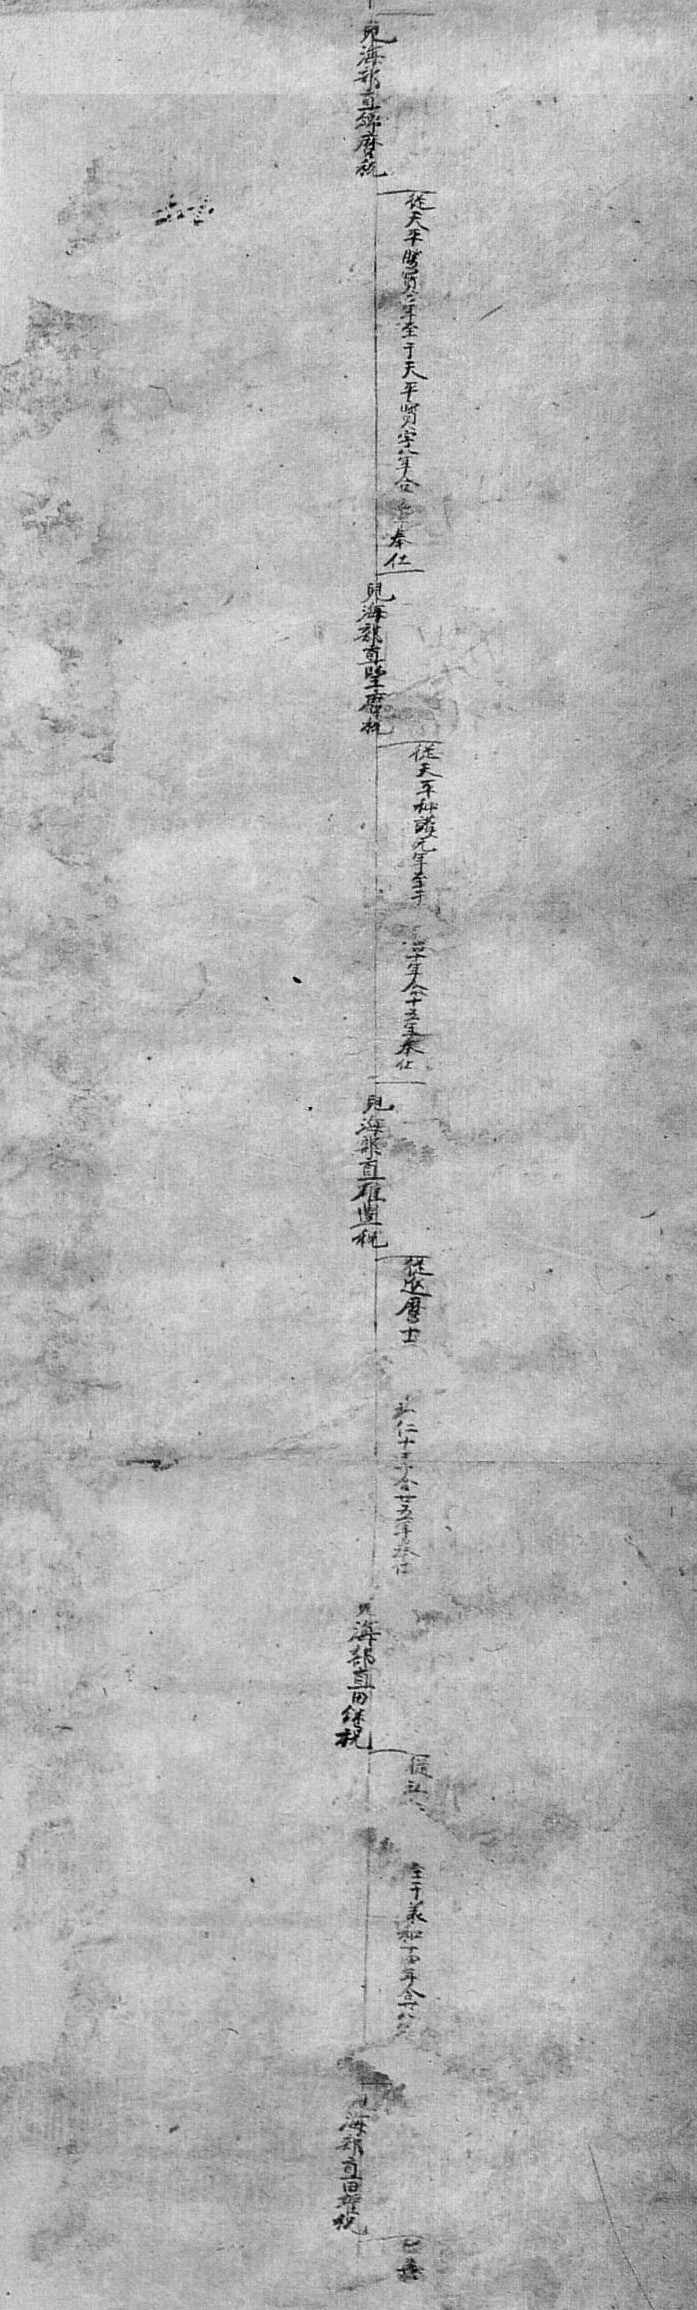 児海部直綿麿祝
従天平勝寳二年至于天平寳字八年合 奉仕
児海部直望麿祝
従天平神護元年至于
十年合十五年奉仕
児海部直雄豊祝
従延暦
仁十 合廿五年奉仕
児海部直田継祝
従
至于承和十四年合
海部直田雄祝